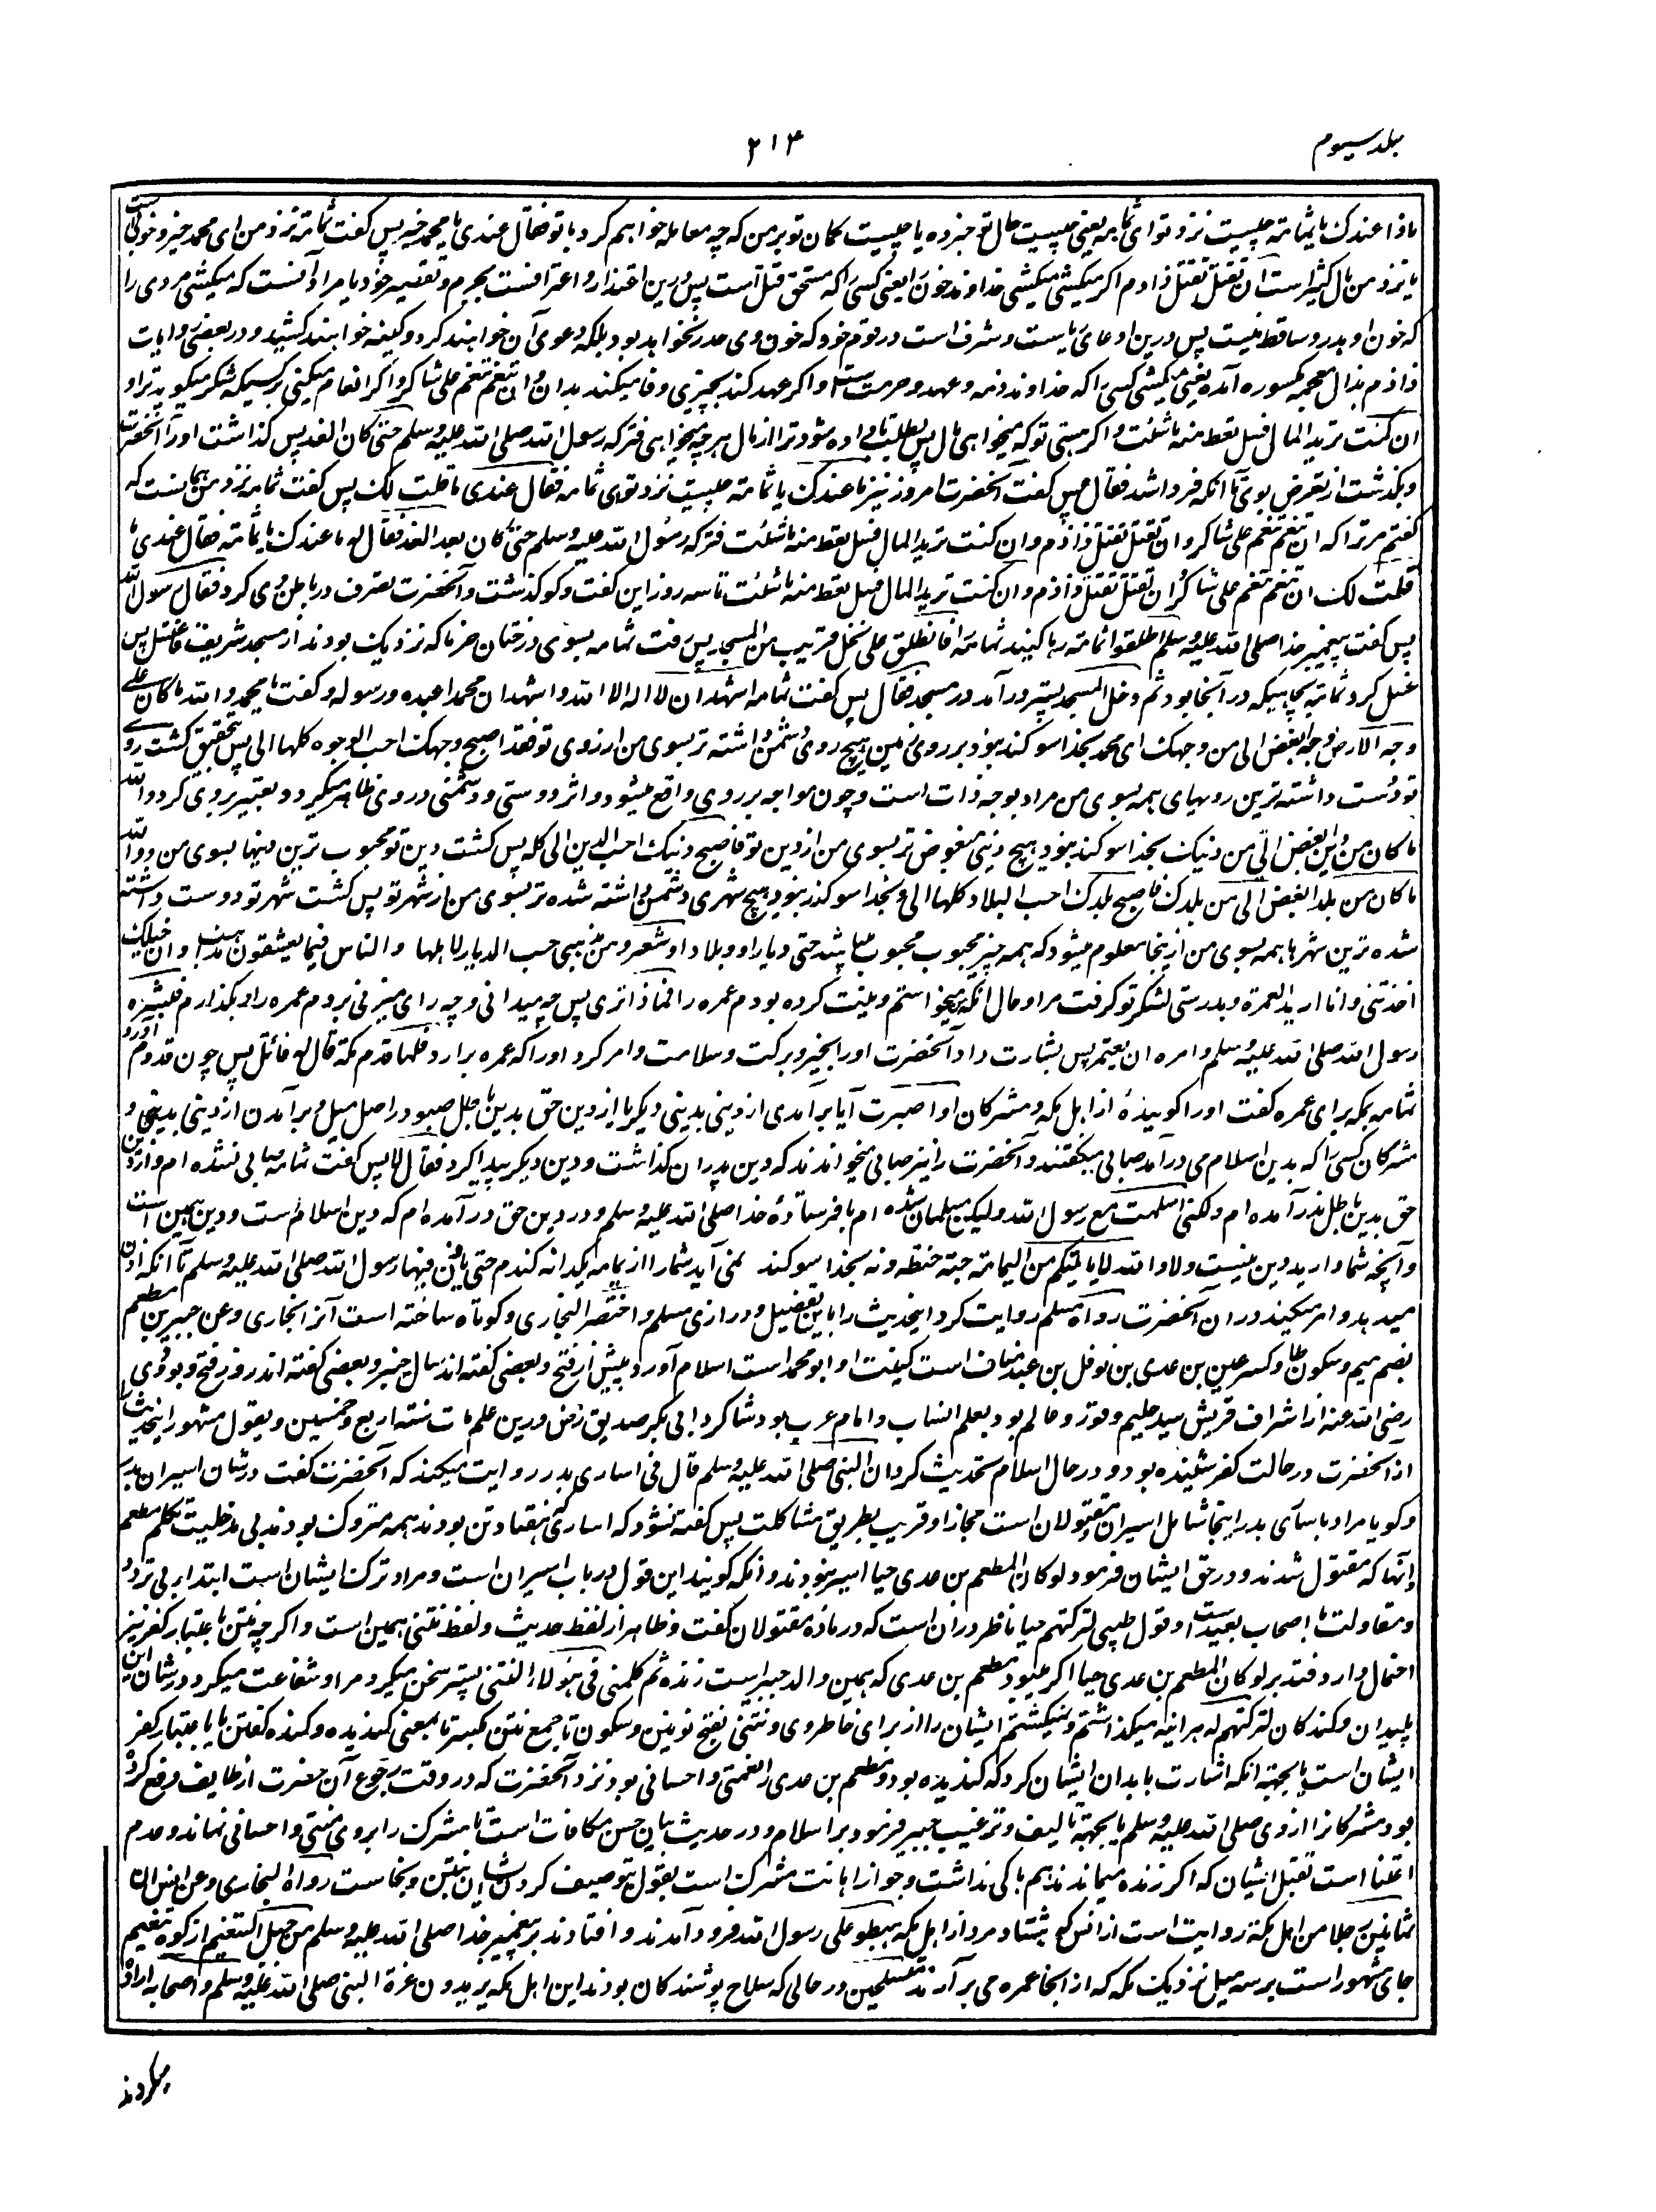 جلد سیوم
۲۱۴
ماذا عندک یا ثمامة چیست نزد تو ای ثمامه یعنی چیست حال تو خبر ده یا چیست گمان تو بر من که چه معامله خواهم کرد با تو فقال عندی یا محمد خیر پس گفت ثمامة نزد من ای محمد خیر و خوبی ست
یا نزد من مال کثیر است ان تقتل تقتل ذا دم اگر میکشی میکشی خداوند خون را یعنی کسی را که مستحق قتل است پس درین اعتذار و اعترافست بجرم و تقصیر خود یا مراد آنست که میکشی مردی را
که خون او هدر و ساقط نیست پس درین ادعای ریاست و شرف است در قوم خود که خون وی هدر نخواهد بود بلکه دعوی آن خواهند کرد و کینه خواهند کشید و در بعضی روایات
ذا ذم بذال معجمه مکسوره آمده یعنی میکشی کسی را که خداوند ذمه و عهد و حرمت ست و اگر عهد کند بچیزی وفا میکند بدان و ان تنعم تنعم علی شاکر و اگر انعام میکنی بر کسیکه شکر میگوید ترا و
ان کنت ترید المال فسل تعط منه ما شئت و اگر هستی تو که میخواهی مال پس بطلب تا داده شود ترا از مال هر چه میخواهی فترکه رسول الله صلی الله علیه وسلم حتی کان الغد پس گذاشت او را آنحضرت
و بگذشت از تعرض بوی تا آنکه فردا شد فقال پس گفت آنحضرت امروز نیز ما عندک یا ثمامة چیست نزد تو ای ثمامه فقال عندی ما قلت لک پس گفت ثمامه نزد من همانست که
گفتم مر ترا که ان تنعم تنعم علی شاکر و ان تقتل تقتل ذا دم و ان کنت ترید المال فسل تعط منه ما شئت فترکه رسول الله صلی الله علیه وسلم حتی کان بعد الغد فقال له ما عندک یا ثمامة فقال عندی ما
قلت لک ان تنعم تنعم علی شاکر و ان تقتل تقتل ذا دم و ان کنت ترید المال فسل تعط منه ما شئت تا سه روز این گفت و گو گذشت و آنحضرت تصرف در باطن وی کرد فقال رسول الله
پس گفت پیغمبر خدا صلی الله علیه وسلم اطلقوا ثمامة رها کنید ثمامه را فانطلق علی نخل قریب من المسجد پس رفت ثمامه بسوی درختان خرما که نزدیک بودند از مسجد شریف فاغتسل پس
غسل کرد ثمامه بچاهیکه در آنجا بود ثم دخل المسجد پستر در آمد در مسجد فقال پس گفت ثمامه اشهد ان لا اله الا الله و اشهد ان محمدا عبده و رسوله و گفت یا محمد والله ما کان علی
وجه الارض وجه ابغض الی من وجهک ای محمد بخدا سوگند نبود بر روی زمین هیچ روی دشمن داشته تر بسوی من از روی تو فقد اصبح وجهک احب الوجوه کلها الی پس بتحقیق گشت روے
تو دوست داشته ترین رویهای همه بسوی من مراد بوجه ذات است و چون مواجه بر روی واقع میشود و اثر دوستی و دشمنی در روی ظاهر میگردد تعبیر بروی کرد والله
ما کان من دین ابغض الی من دینک بخدا سوگند نبود هیچ دینی مبغوض تر بسوی من از دین تو فاصبح دینک احب الدین الی کله پس گشت دین تو محبوب ترین دینها بسوی من و والله
ما کان من بلد ابغض الی من بلدک فاصبح بلدک احب البلاد کلها الی و بخدا سوگند نبود هیچ شهری دشمن داشته شده تر بسوی من از شهر تو پس گشت شهر تو دوست داشته
شده ترین شهرها همه بسوی من ازینجا معلوم میشود که همه چیز محبوب محبوب میباشد حتی دیار او و بلاد او شعر و من مذهبی حب الدیار لاهلها و الناس فیما یعشقون مذاهب و ان خیلک
اخذتنی و انا ارید العمرة و بدرستی لشکر تو گرفت مرا و حال آنکه میخواستم و نیت کرده بودم عمره را فماذا تری پس چه میدانی و چه رای میزنی بروم عمره را و بگذارم فبشره
رسول الله صلی الله علیه وسلم و امره ان یعتمر پس بشارت داد آنحضرت او را بخیر و برکت و سلامت و امر کرد او را که عمره برآرد فلما قدم مکة قال له قائل پس چون قدوم آورد
ثمامه بمکه برای عمره گفت او را گوینده از اهل مکه و مشرکان او اصبوت آیا برآمدی از دینی بدینی دیگر یا از دین حق بدین باطل صبو در اصل میل و برآمدن از دینی بدینی و
مشرکان کسی را که بدین اسلام می درآمد صابی میگفتند و آنحضرت را نیز صابی میخواندند که دین پدران گذاشت و دین دیگر پیدا کرد فقال لا پس گفت ثمامه صابی نشده ام و از دین
حق بدین باطل نه در آمده ام ولکنی اسلمت مع رسول الله ولیکن مسلمان شده ام با فرستادهٔ خدا صلی الله علیه وسلم و در دین حق در آمده ام که دین اسلام ست و دین همین است
و آنچه شما دارید دین نیست ولا والله لا یأتیکم من الیمامة حبة حنطة و نه بخدا سوگند نمی آید شما را از یمامه یکدانه گندم حتی یأذن فیها رسول الله صلی الله علیه وسلم تا آنکه اذن
میدهد و امر میکند در آن آنحضرت رواه مسلم روایت کرد اینحدیث را باین تفصیل و درازی مسلم و اختصره البخاری و کوتاه ساخته است آنرا بخاری و عن جبیر بن مطعم
بضم میم و سکون طا و کسر عین بن عدی بن نوفل بن عبد مناف است کنیت او ابو محمد است اسلام آورد پیش از فتح و بعضی گفته اند سال خیبر و بعضی گفته اند روز فتح و بود وی
رضی الله عنه از اشراف قریش سید حلیم و وقور و عالم بود بعلم انساب و امام عرب بود شاگرد ابی بکر صدیق رض درین علم مات سنة اربع و خمسین و بقول مشهور اینحدیث را
از آنحضرت در حالت کفر شنیده بود و در حال اسلام تحدیث کرد ان النبی صلی الله علیه وسلم قال فی اساری بدر روایت میکند که آنحضرت گفت در شان اسیران بدر
و گویا مراد باسارای بدر اینجا شامل اسیران و مقتولان است مجازا و قریب بطریق مشاکلت پس گفته نشود که اساری که هفتاد تن بودند همه متروک بودند بی مدخلیت تکلم مطعم
آنها که مقتول شدند و در حق ایشان فرمود لو کان المطعم بن عدی حیا اسیر نبودند و آنکه گویند این قول در باب اسیران است و مراد ترک ایشان است ابتداء بی تردد
و مقاولت با اصحاب بعید ست و قول طیبی لترکتهم حیا ناظر دران است که در مادهٔ مقتولان گفت و ظاهر از لفظ حدیث و لفظ نتنی همین است و اگر چه نتن باعتبار کفر نیز
احتمال دارد فتدبر لو کان المطعم بن عدی حیا اگر میبود مطعم بن عدی که همین والد جبیر است زنده ثم کلمنی فی هؤلاء النتنی پستر سخن میکرد مرا و شفاعت میکرد در شان این
پلیدان و گندگان لترکتهم له هر آینه میگذاشتم و نمیکشتم ایشان را از برای خاطر وی و نتنی بفتح نونین و سکون تا جمع نتن بکسر تا بمعنی گندیده و گنده گفتن یا باعتبار کفر
ایشان است یا بجهة آنکه اشارت بابدان ایشان کرد که گندیده بود و مطعم بن عدی را نعمتی و احسانی بود نزد آنحضرت که در وقت رجوع آن حضرت از طایف دفع کرده
بود مشرکانرا از وی صلی الله علیه وسلم یا بجهة تالیف و ترغیب جبیر فرمود بر اسلام و در حدیث بیان حسن مکافات است تا مشرک را بر وی منتی و احسانی نماند و عدم
اعتنا است بقتل ایشان که اگر زنده میماندند هم باکی نداشت و جواز اهانت مشرک است بقول و توصیف کردن ایشان بنتن و نجاست رواه البخاری و عن انس ان
ثمانین رجلا من اهل مکة روایت است از انس که هشتاد مرد از اهل مکه هبطوا علی رسول الله فرود آمدند و افتادند بر پیغمبر خدا صلی الله علیه وسلم من جبل التنعیم از کوه تنعیم
جای مشهور است بر سه میل نزدیک مکه که از انجا عمره می برآرند متسلحین در حالی که سلاح پوشندگان بودند این اهل مکه یریدون غرة النبی صلی الله علیه وسلم و اصحابه اراده
میکردند